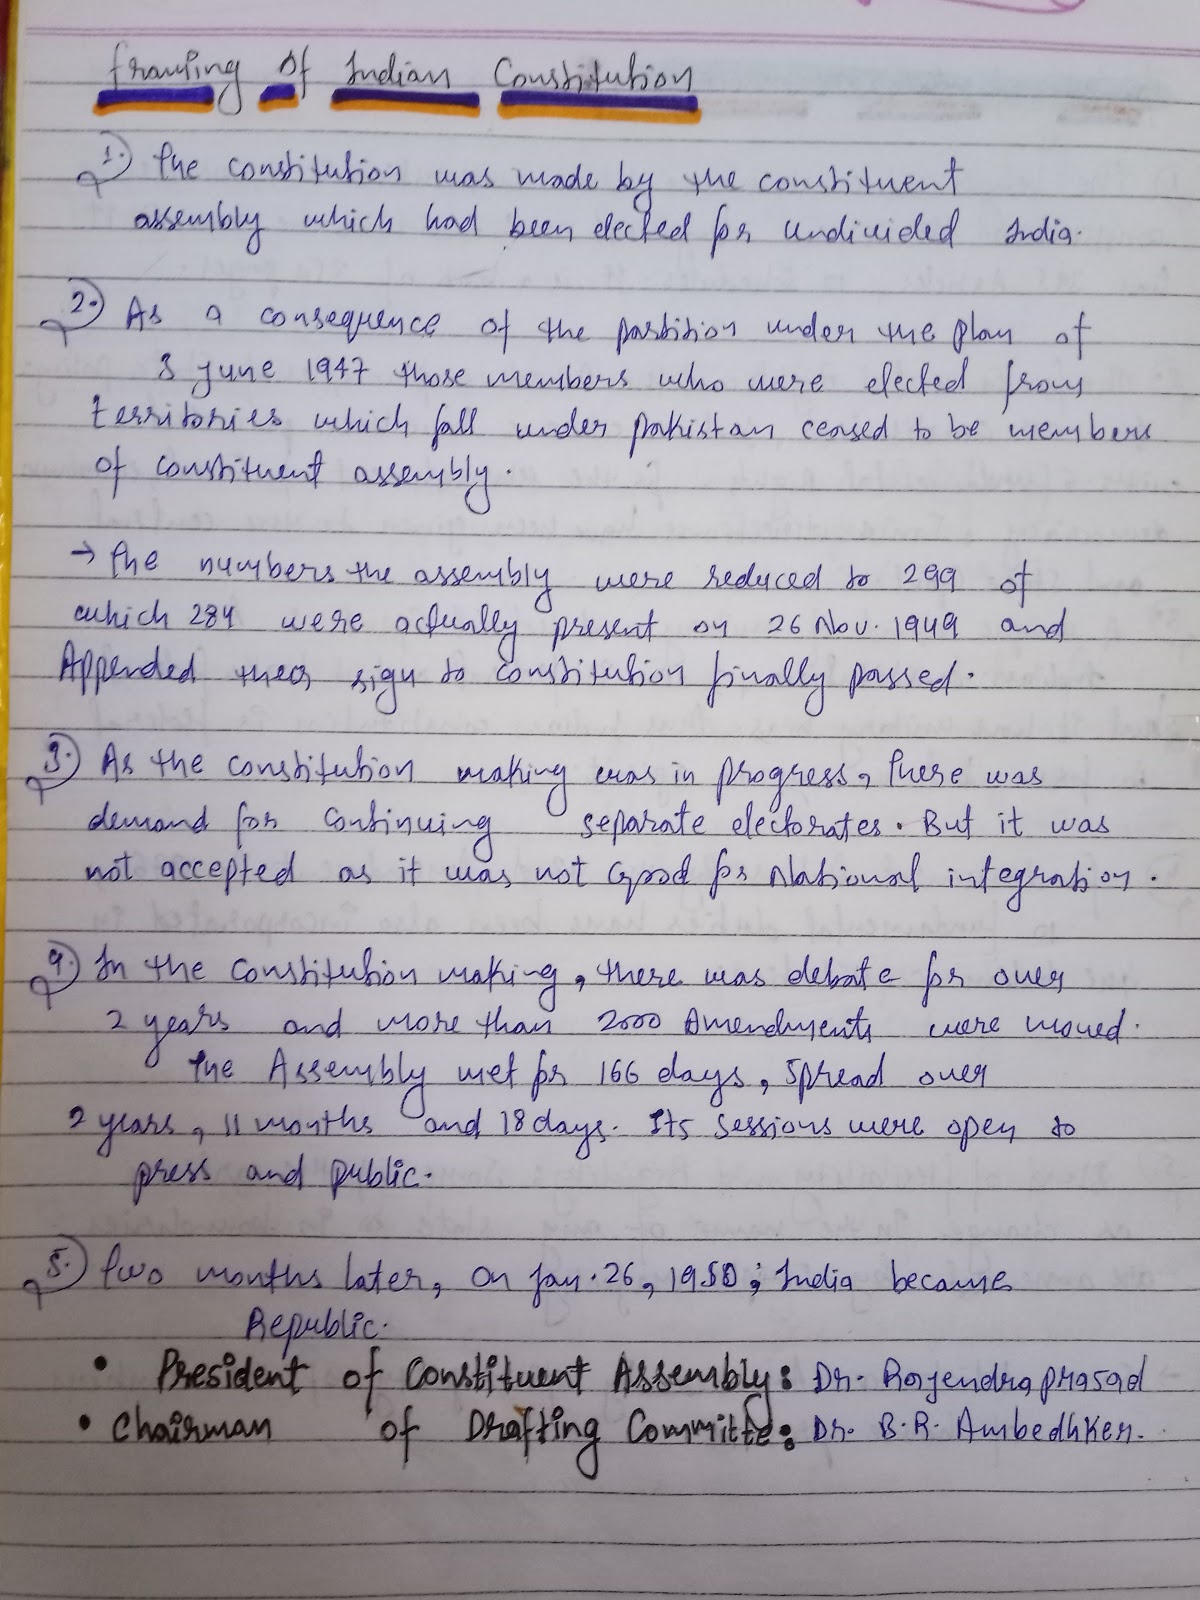 Framing of Indian Constitution
1. The constitution was made by the constituent
assembly which had been elected for undivided India.
2. As a consequence of the partition under the plan of
3 june 1947 those members who were elected from
territories which fall under pakistan ceased to be members
of constituent assembly.
→ The numbers the assembly were reduced to 299 of
which 284 were actually present on 26 Nov. 1949 and
Appended their sign to constitution finally passed.
3. As the constitution making was in progress, there was
demand for continuing separate electorates. But it was
not accepted as it was not Good for National integration.
4. In the constitution making, there was debate for over
2 years and more than 2000 Amendments were moved.
The Assembly met for 166 days, spread over
2 years, 11 months and 18 days. Its sessions were open to
press and public.
5. Two months later, on Jan. 26, 1950; India became
Republic.
• President of Constituent Assembly: Dr. Rajendra prasad
• Chairman of Drafting Committe: Dr. B.R. Ambedhker.